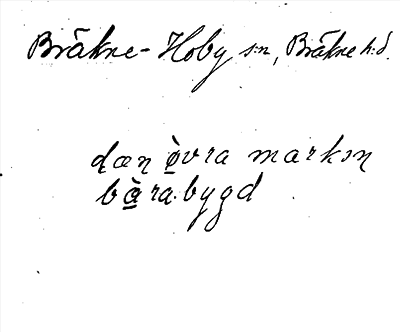 Bräkne-Hoby s:n, Bräkne h:d.
dæn ò̲vra markɜn
bà̲ra bygd